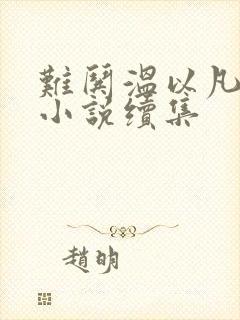 難鬨溫以凡
小說續集
趙明